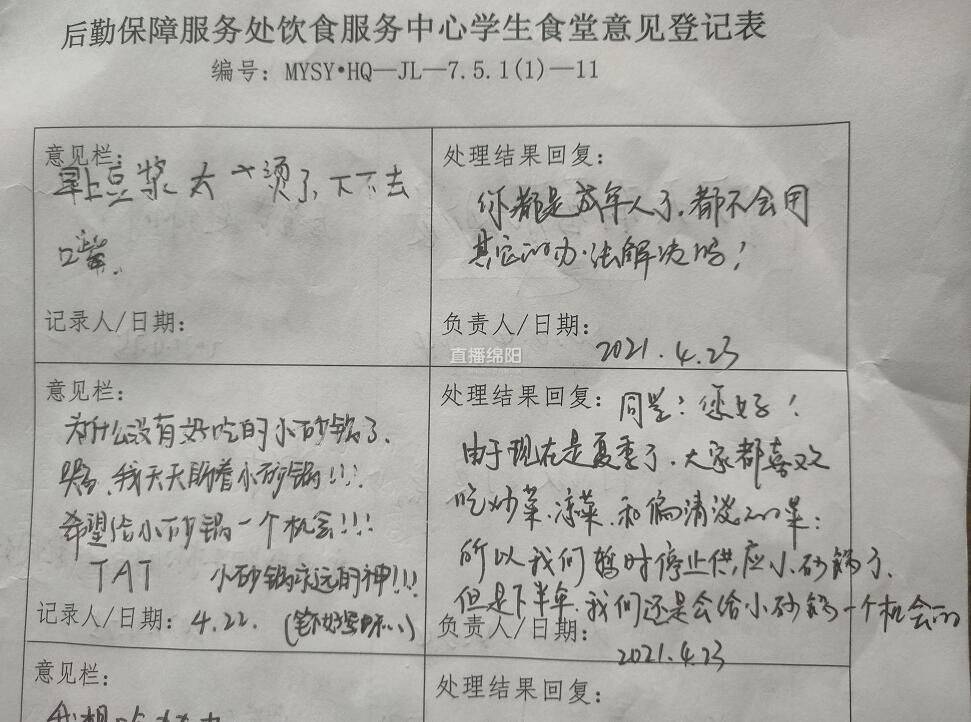 后勤保障服务处饮食服务中心学生食堂意见登记表
编号：MYSY•HQ—JL—7.5.1(1)—11
意见栏：
早上豆浆太烫了、下不去
嘴。
记录人/日期：
处理结果回复：
你都是成年人了，都不会用
其它的办法解决吗！
负责人/日期：
2021.4.23
直播绵阳
意见栏：
为什么没有好吃的小砂锅了、
我天天盼着小砂锅!!!
希望给小砂锅一个机会!!!
TAT 小砂锅永远的神!!!
记录人/日期：4.22.
处理结果回复：同学！您好！
由于现在是夏季了，大家都喜欢
吃炒菜、凉菜、和偏清淡的菜；
所以我们暂时停止供应小砂锅了、
但是下半年，我们还是会给小砂锅一个机会的
负责人/日期：
2021.4.23
意见栏：
我想吃
处理结果回复：